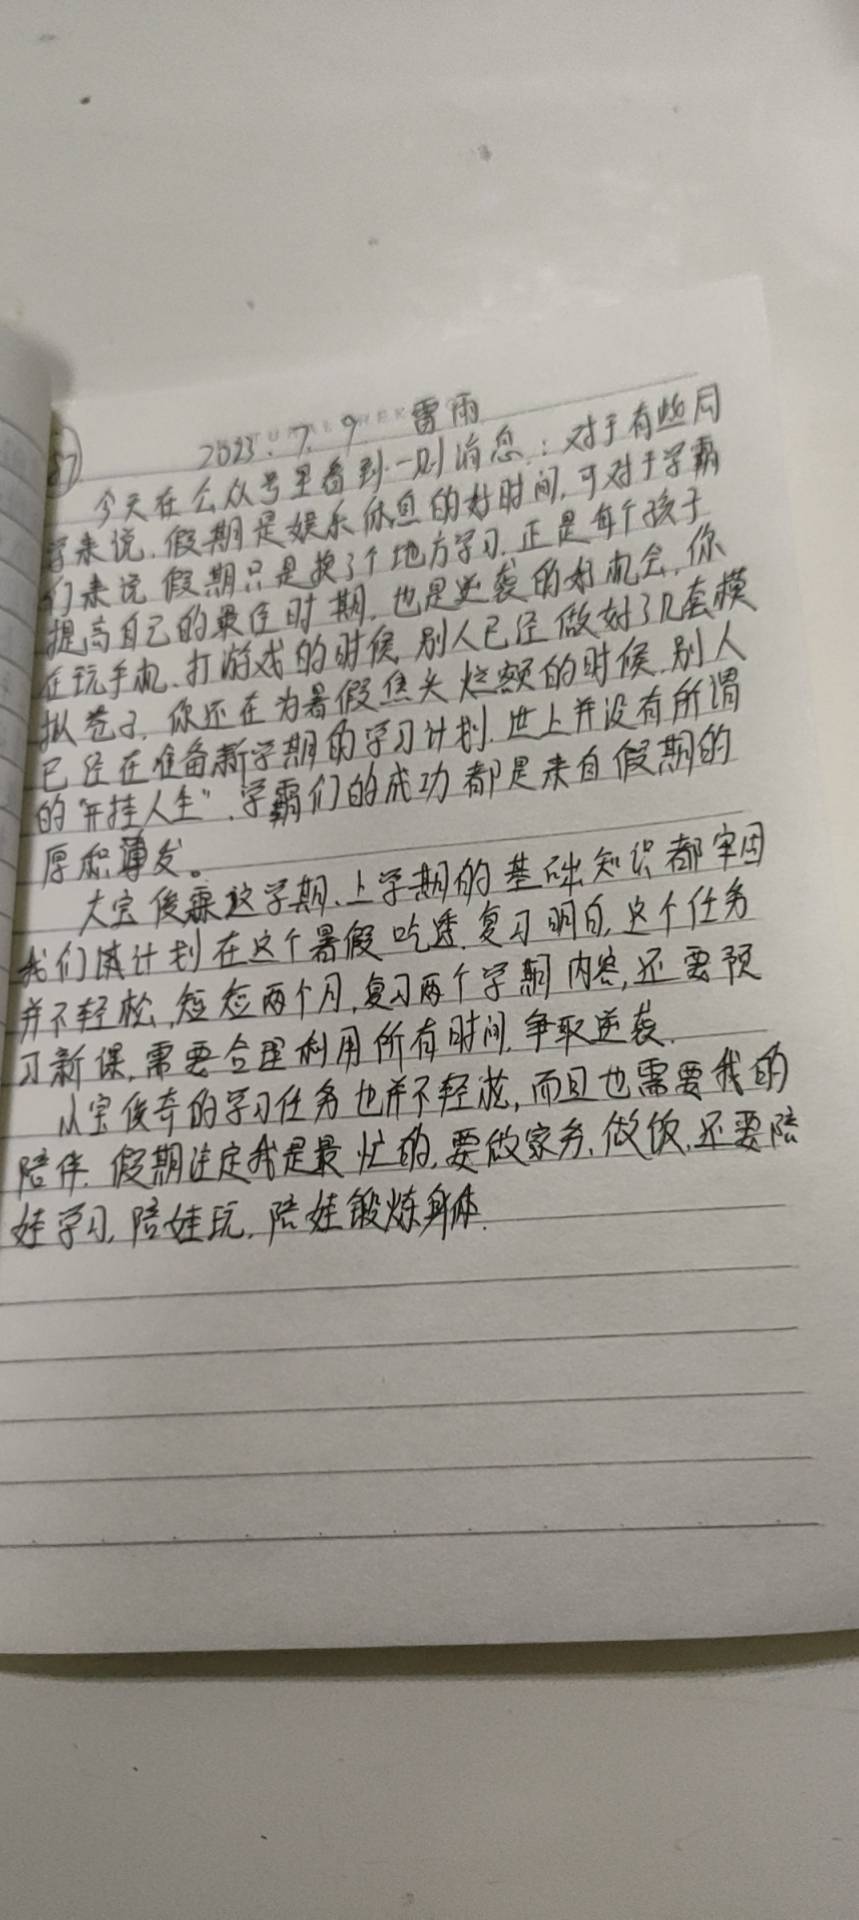 2023.7.9. 雷雨
今天在公众号里看到一则消息：对于有些同
学来说，假期是娱乐休息的好时间，可对于学霸
们来说 假期只是换了个地方学习，正是每个孩子
提高自己的最佳时期，也是逆袭的好机会，你
在玩手机、打游戏的时候，别人已经做好了几套模
拟卷子，你还在为暑假焦头烂额的时候，别人
已经在准备新学期的学习计划，世上并没有所谓
的“开挂人生”，学霸们的成功都是来自假期的
厚积薄发。
大宝俊霖这学期、上学期的基础知识都牢固
我们俩计划在这个暑假吃透，复习明白，这个任务
并不轻松，短短两个月，复习两个学期内容，还需预
习新课，需要合理利用所有时间，争取逆袭。
从宝俊奇的学习任务也并不轻松，而且也需要我的
陪伴，假期注定我是最忙的，要做家务，做饭，还要陪
娃学习，陪娃玩，陪娃锻炼身体.